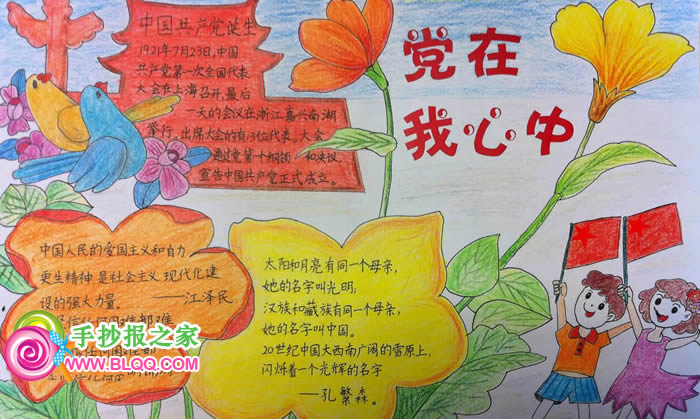 党在
我心中
中国共产党诞生
1921年7月23日,中国
共产党第一次全国代表
大会在上海召开,最后
一天的会议在浙江嘉兴南湖
举行,出席大会的有13位代表。大会
通过党第个纲领和决议,
宣告中国共产党正式成立。
中国人民的爱国主义和自力
更生精神是社会主义现代化建
设的强大力量。
——江泽民
太阳和月亮有同一个母亲,
她的名字叫光明,
汉族和藏族有同一个母亲,
她的名字叫中国。
20世纪中国大西南广阔的雪原上,
闪烁着一个光辉的名字
——孔繁森。
手抄报之家
WWW.BLQQ.COM